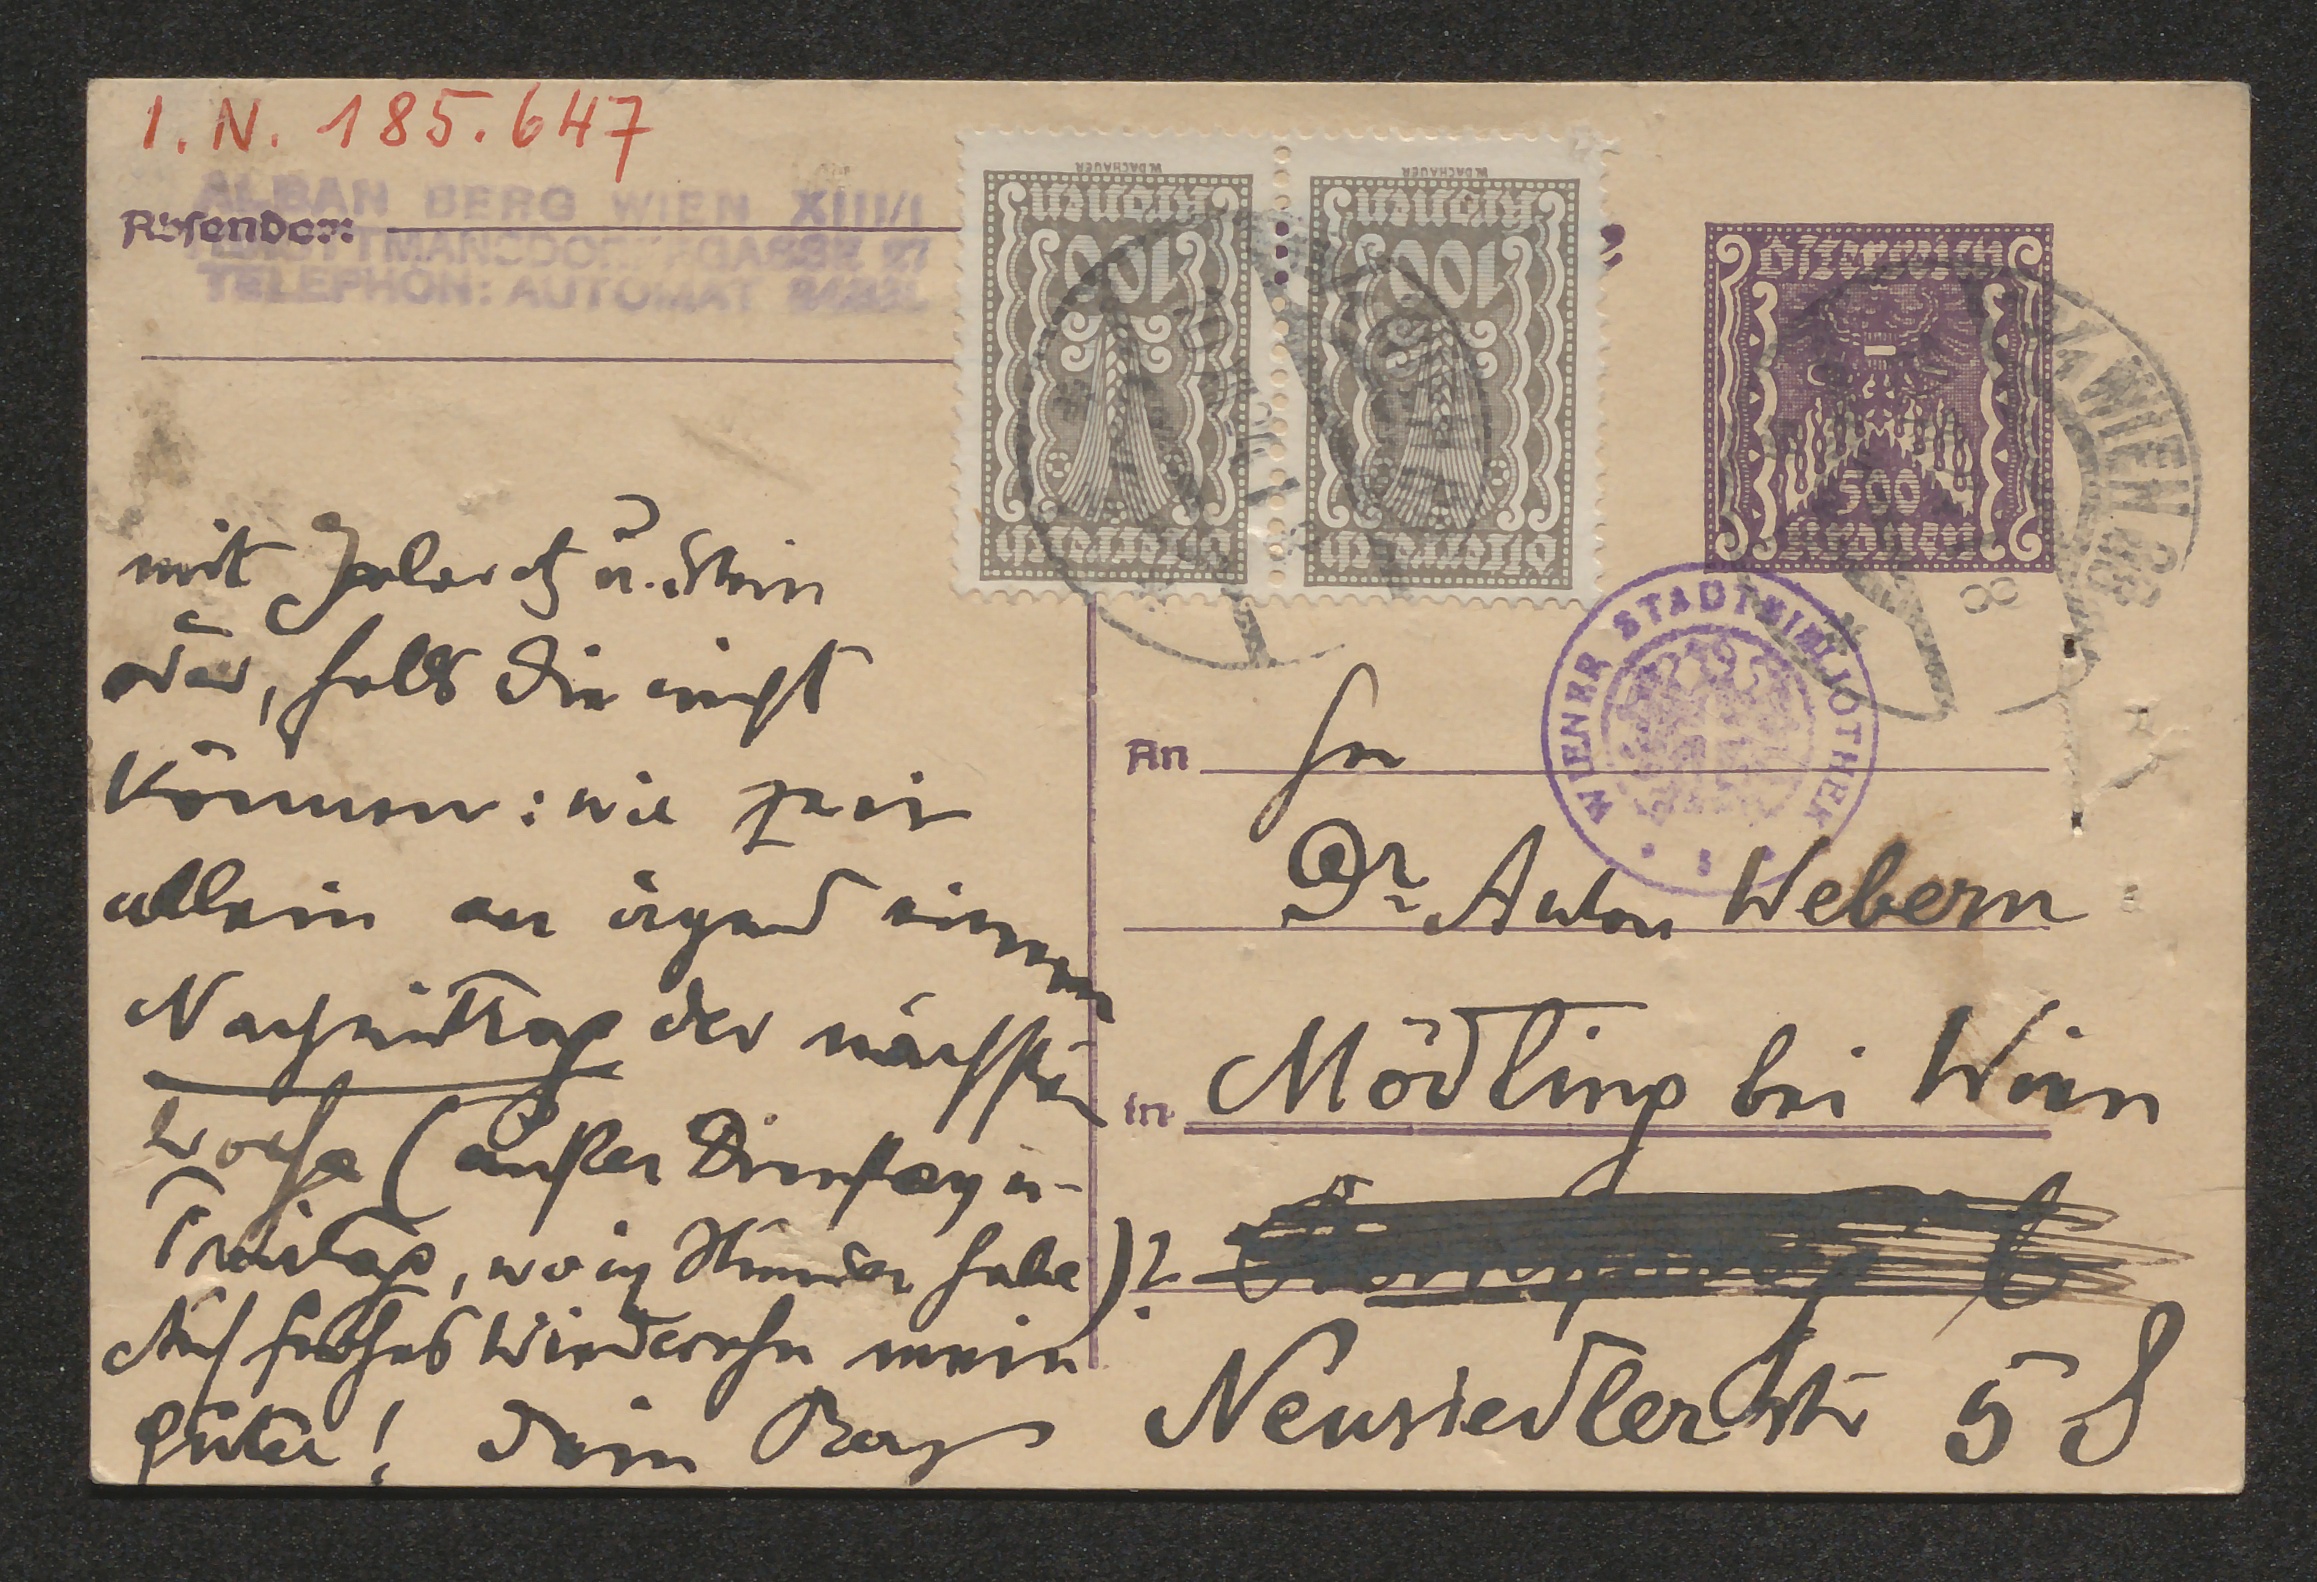 I.N. 185.647
ALBAN BERG WIEN XIII/1
Absender:
TRAUTTMANSDORFFGASSE 27
TELEPHON: AUTOMAT
W.DACHAUER
W.DACHAUER
Kronen
Kronen
100
100
Österreich
Österreich
Österreich
500
Kronen
WIEN
WIENER STADTBIBLIOTHEK
mit u. Stein
oder, falls die nicht
können: wir zwei
allein an irgend einem
Nachmittag der nächsten
Woche (außer Dienstag u.
Freitag, wo ich Stunden habe)?
Auf frohes Wiedersehn mein
guter! Dein Berg
An Hrn
Dr. Anton Webern
in Mödling bei Wien
Neusiedlerstr 58